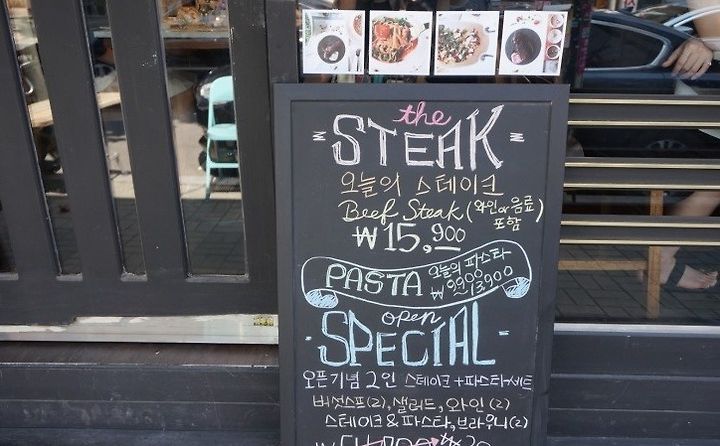 the
STEAK
오늘의 스테이크
Beef Steak (와인 or 음료)
포함
₩15,900
PASTA 오늘의 파스타
₩9900
13,900
open
SPECIAL
오픈기념 2인 스테이크+파스타세트
버섯스프(2), 샐러드, 와인(2)
스테이크 & 파스타, 브라우니(2)